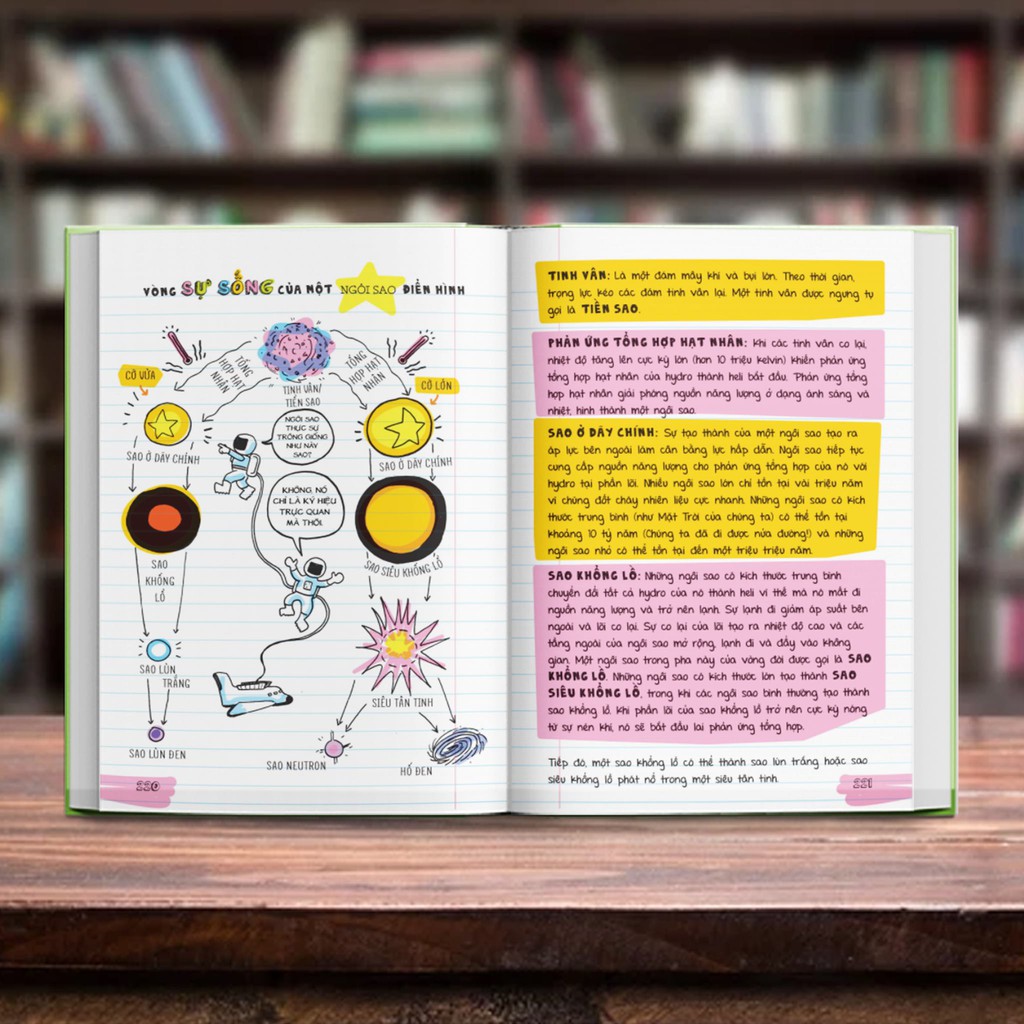 VÒNG SỰ SỐNG CỦA MỘT NGÔI SAO ĐIỂN HÌNH
TỔNG HỢP HẠT NHÂN
TỔNG HỢP HẠT NHÂN
CỠ VỪA
CỠ LỚN
TINH VÂN/
TIỀN SAO
NGÔI SAO
THỰC SỰ
TRÔNG GIỐNG
NHƯ NÀY
SAO?
SAO Ở DÃY CHÍNH
SAO Ở DÃY CHÍNH
KHÔNG, NÓ
CHỈ LÀ KÝ HIỆU
TRỰC QUAN
MÀ THÔI
SAO
KHỔNG
LỒ
SAO SIÊU KHỔNG LỒ
SAO LÙN
TRẮNG
SIÊU TÂN TINH
SAO LÙN ĐEN
SAO NEUTRON
HỐ ĐEN
220
TINH VÂN: Là một đám mây khí và bụi lớn. Theo thời gian,
trọng lực kéo các đám tinh vân lại. Một tinh vân được ngưng tụ
gọi là TIỀN SAO.
PHẢN ỨNG TỔNG HỢP HẠT NHÂN: Khi các tinh vân co lại,
nhiệt độ tăng lên cực kỳ lớn (hơn 10 triệu kelvin) khiến phản ứng
tổng hợp hạt nhân của hydro thành heli bắt đầu. Phản ứng tổng
hợp hạt nhân giải phóng nguồn năng lượng ở dạng ánh sáng và
nhiệt, hình thành một ngôi sao.
SAO Ở DÃY CHÍNH: Sự tạo thành của một ngôi sao tạo ra
áp lực bên ngoài làm cân bằng lực hấp dẫn. Ngôi sao tiếp tục
cung cấp nguồn năng lượng cho phản ứng tổng hợp của nó với
hydro tại phần lõi. Nhiều ngôi sao lớn chỉ tồn tại vài triệu năm
vì chúng đốt cháy nhiên liệu cực nhanh. Những ngôi sao có kích
thước trung bình (như Mặt Trời của chúng ta) có thể tồn tại
khoảng 10 tỷ năm (Chúng ta đã đi được nửa đường!) và những
ngôi sao nhỏ có thể tồn tại đến một triệu triệu năm.
SAO KHỔNG LỒ: Những ngôi sao có kích thước trung bình
chuyển đổi tất cả hydro của nó thành heli vì thế mà nó mất đi
nguồn năng lượng và trở nên lạnh. Sự lạnh đi giảm áp suất bên
ngoài và lõi co lại. Sự co lại của lõi tạo ra nhiệt độ cao và các
tầng ngoài của ngôi sao mở rộng, lạnh đi và đẩy vào không
gian. Một ngôi sao trong pha này của vòng đời được gọi là SAO
KHỔNG LỒ. Những ngôi sao có kích thước lớn tạo thành SAO
SIÊU KHỔNG LỒ, trong khi các ngôi sao bình thường tạo thành
sao khổng lồ. Khi phần lõi của sao khổng lồ trở nên cực kỳ nóng
từ sự nén khí, nó sẽ bắt đầu lại phản ứng tổng hợp.
Tiếp đó, một sao khổng lồ có thể thành sao lùn trắng hoặc sao
siêu khổng lồ phát nổ trong một siêu tân tinh.
221